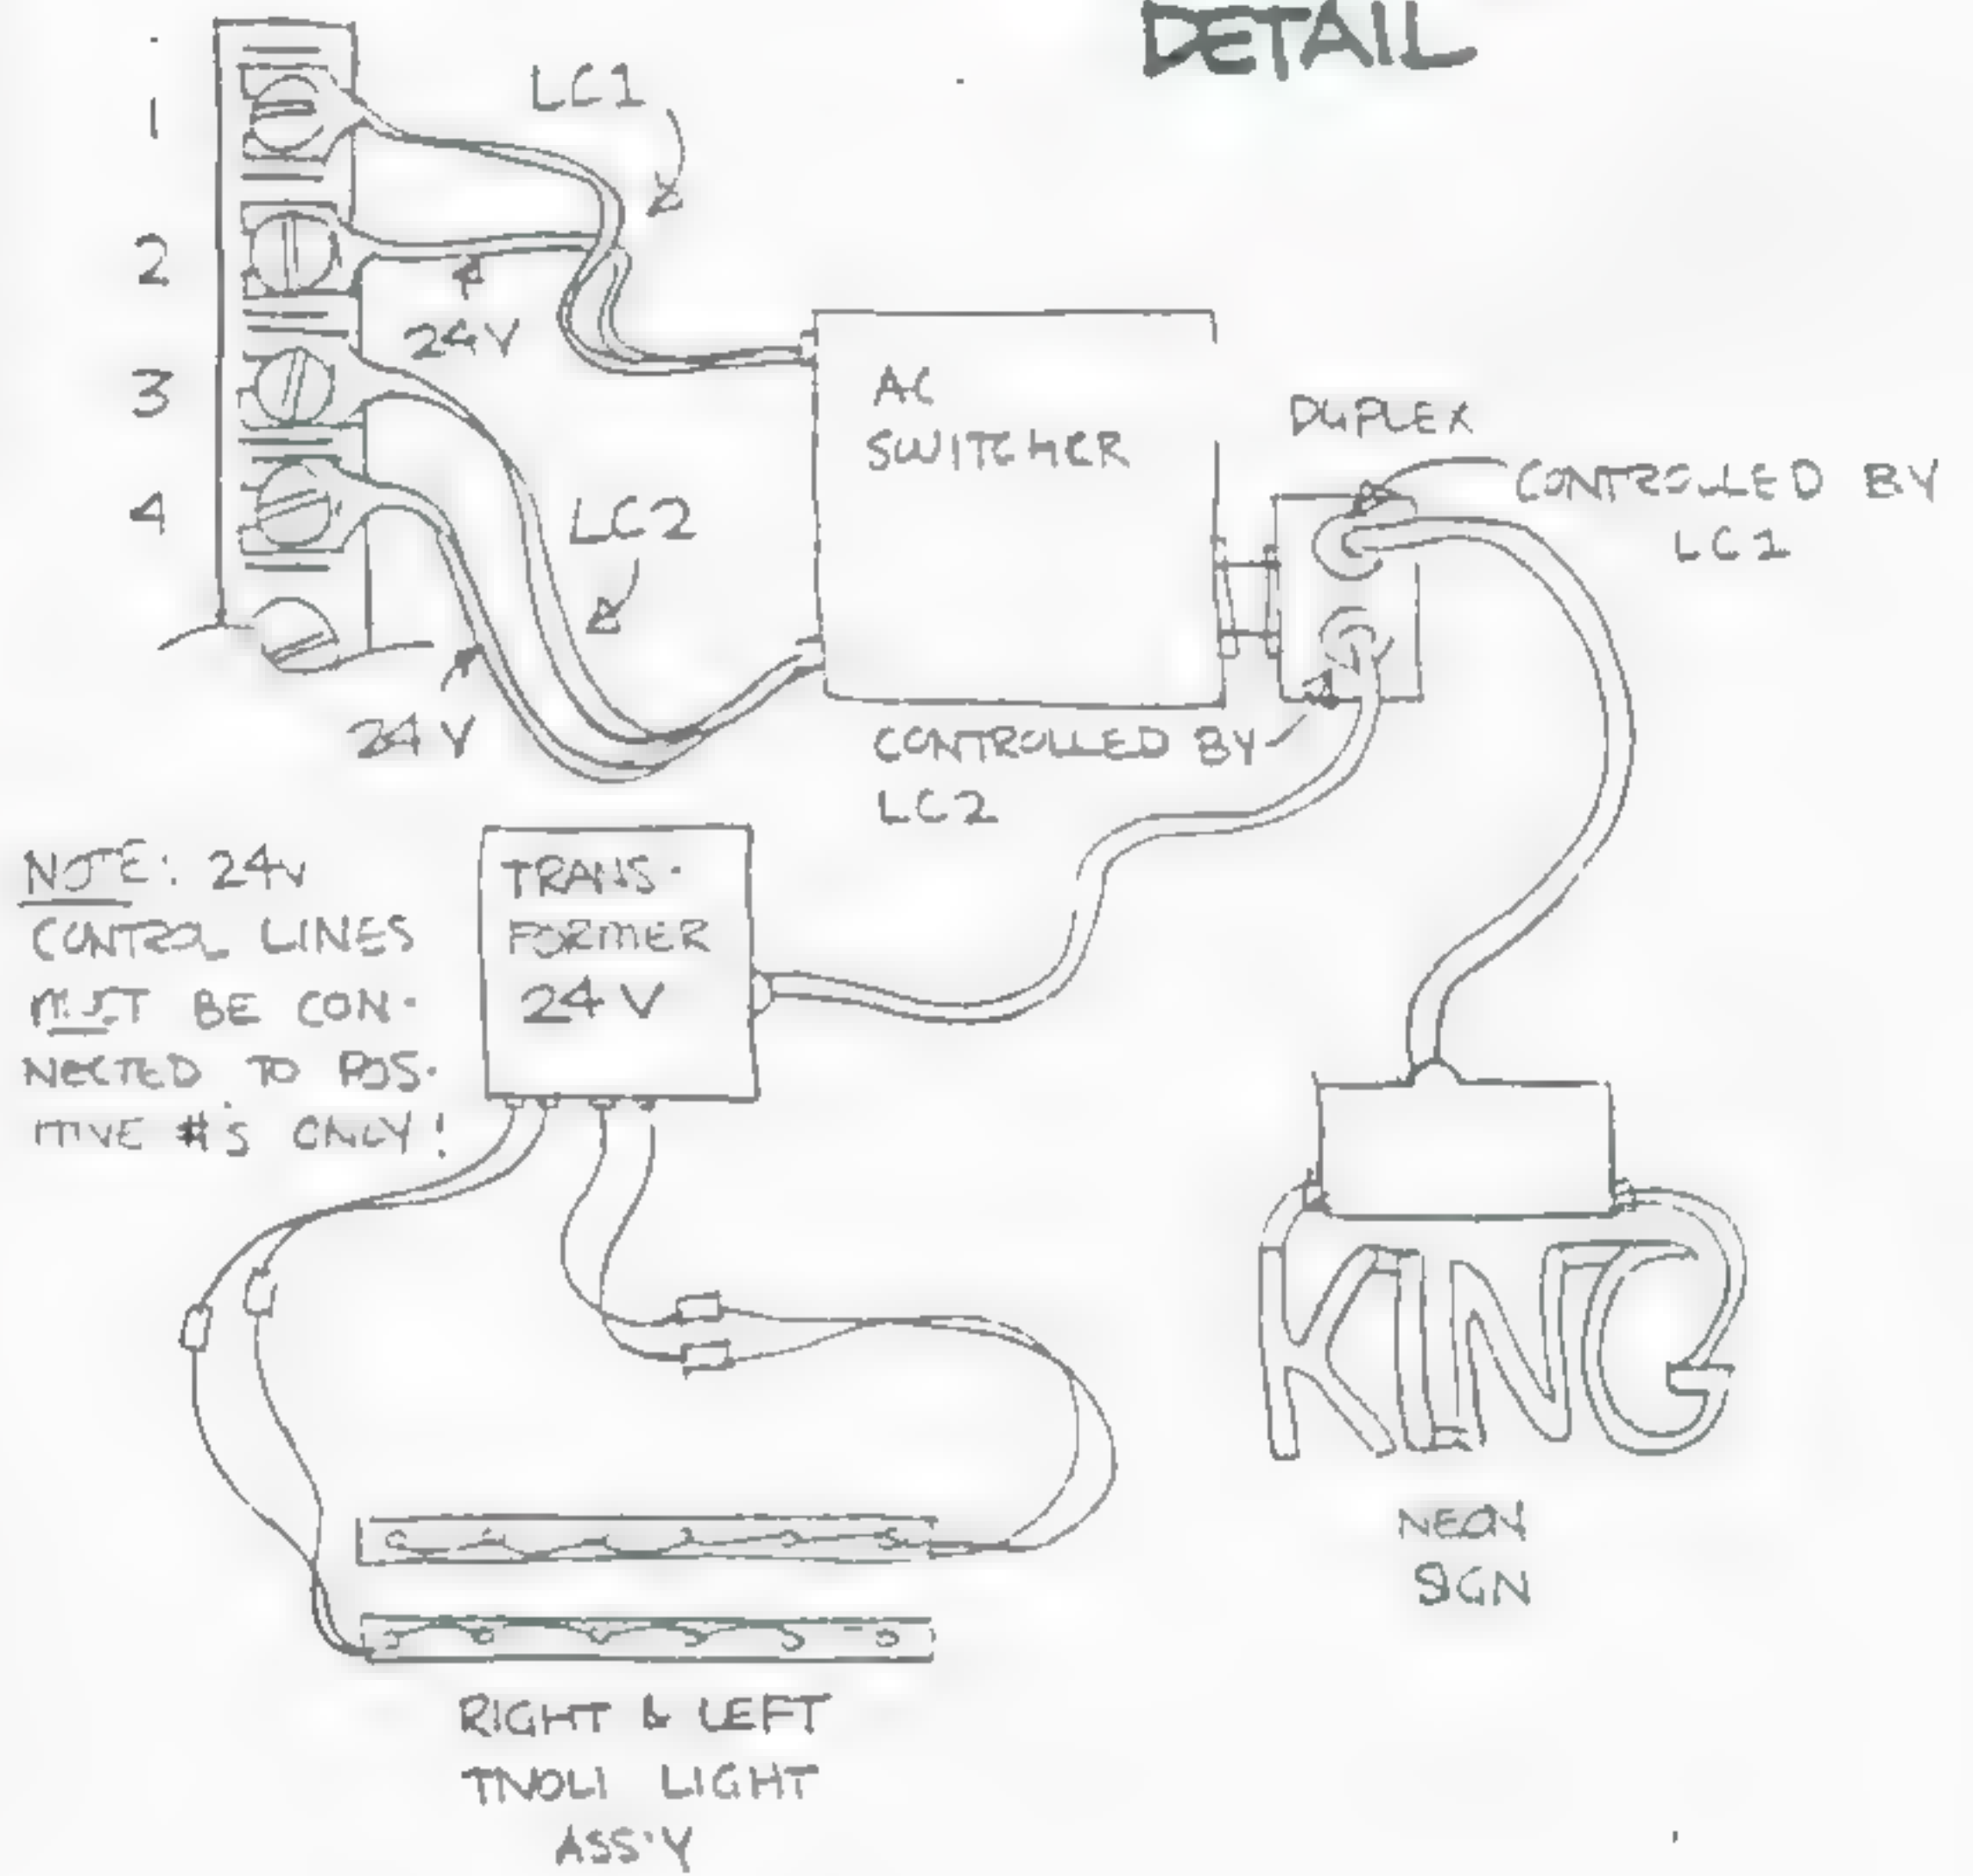 DETAIL
1
LC1
2
24V
3
AC
SWITCHER
DUPLEX
CONTROLLED BY
LC1
4
LC2
24V
CONTROLLED BY
LC2
NOTE: 24V
CONTROL LINES
MUST BE CON-
NECTED TO POS-
ITIVE #'S ONLY!
TRANS-
FORMER
24V
KING
NEON
SIGN
RIGHT & LEFT
TIVOLI LIGHT
ASS'Y